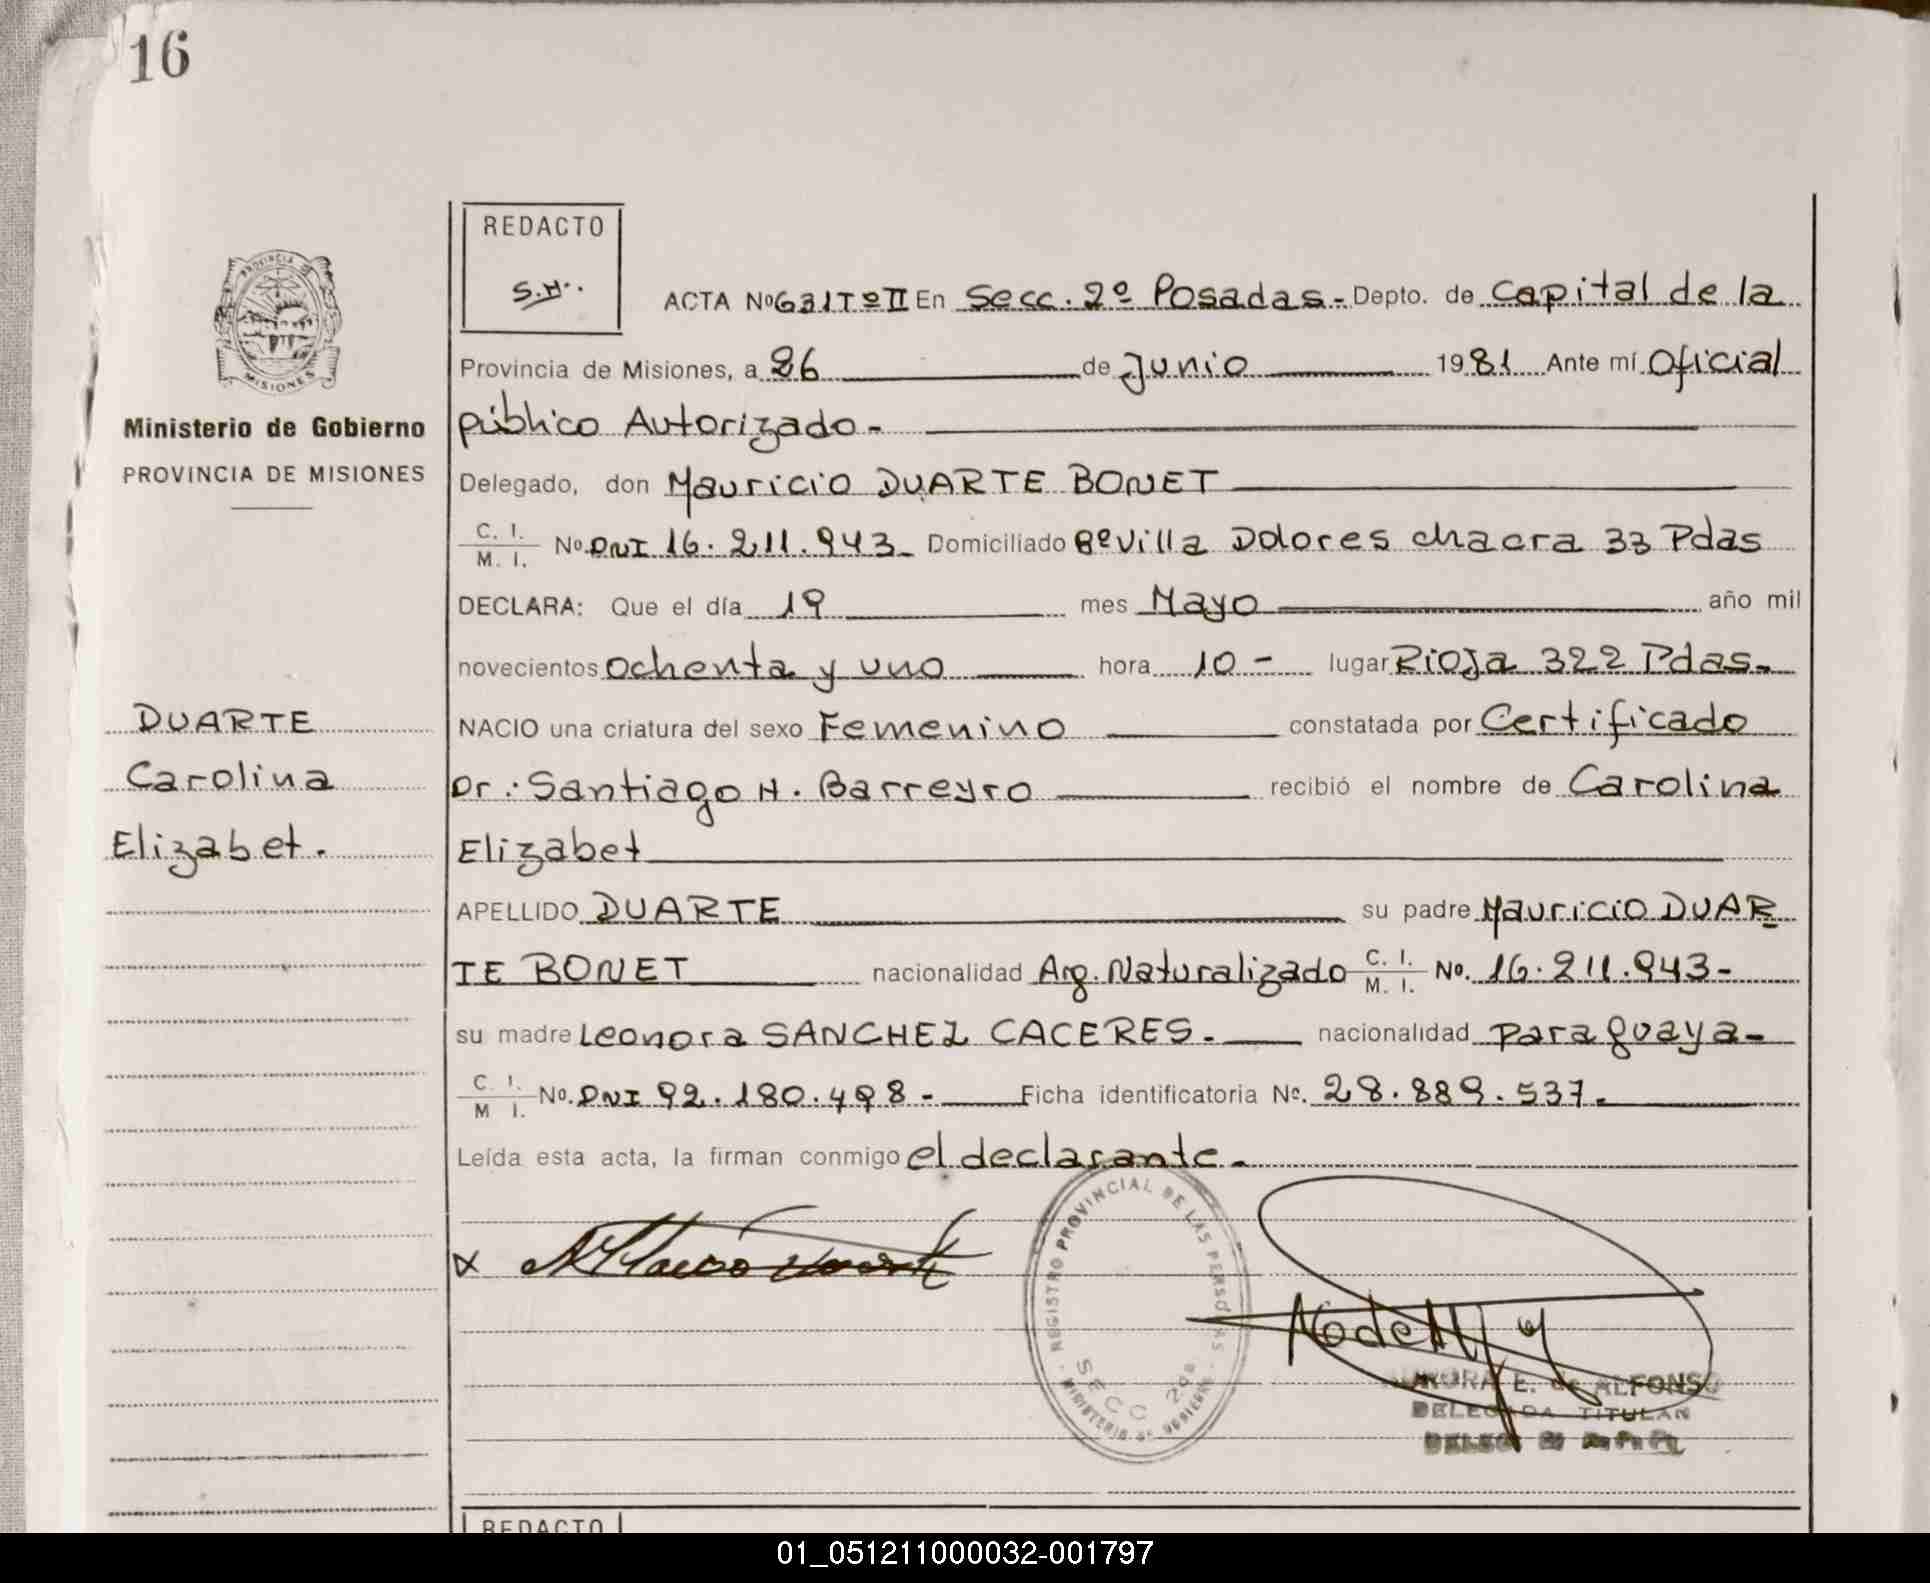 16
REDACTO
S.H..
PROVINCIA DE
MISIONES
Ministerio de Gobierno
PROVINCIA DE MISIONES
ACTA Nº 631 Tº II En Secc. 2º Posadas.- Depto. de Capital de la
Provincia de Misiones, a 26 de Junio 1981 Ante mí Oficial
público Autorizado-
Delegado, don Mauricio DUARTE BONET
C. I.
M. I. Nº DNI 16.211.943- Domiciliado Bº Villa Dolores chacra 33 Pdas
DECLARA: Que el día 19 mes Mayo año mil
novecientos ochenta y uno hora 10- lugar Rioja 322 Pdas-
NACIO una criatura del sexo Femenino constatada por Certificado
Dr.: Santiago H. Barreyro recibió el nombre de Carolina
Elizabet
APELLIDO DUARTE su padre Mauricio DUAR
TE BONET nacionalidad Arg. Naturalizado C. I.
M. I. No. 16.211.943-
su madre Leonora SANCHEZ CACERES.- nacionalidad paraguaya-
C. I.
M I. No. DNI 92.180.498- Ficha identificatoria Nº. 28.889.537.
Leída esta acta, la firman conmigo el declarante.-
DUARTE
Carolina
Elizabet.
x
REGISTRO PROVINCIAL DE LAS PERSONAS
SECC 2da
MINISTERIO DE GOBIERNO
AURORA E. de ALFONSO
DELEGADA TITULAR
REDACTO
01_051211000032-001797